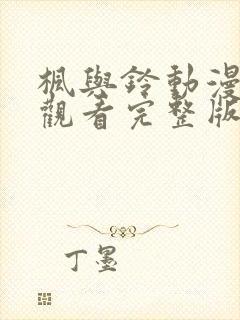 楓與鈴動漫
觀看完整版
丁墨